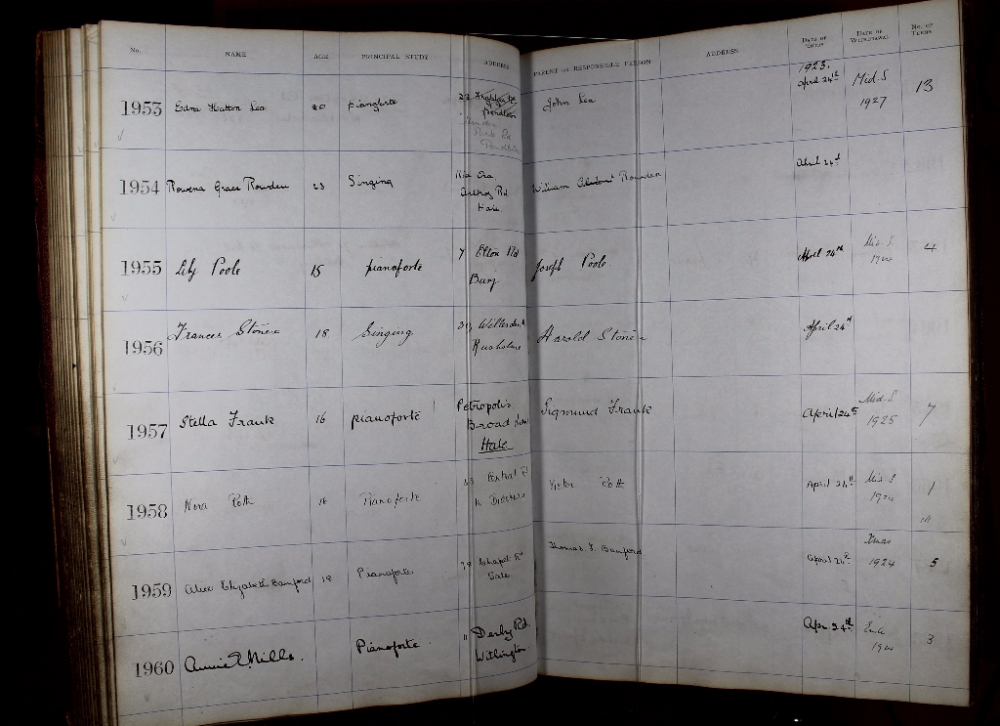 No. NAME AGE PRINCIPAL STUDY ADDRESS PARENT or RESPONSIBLE PERSON ADDRESS DATE OF ENTRY DATE OF WITHDRAWAL NO. OF TERMS
1923.
1953 Edna Hatton Lea 20 pianoforte John Lea April 24th Mid. S 1927 13
1954 Rowena Grace Rowden 23 Singing Rd Hale William Rowden April 24th
1955 Lily Poole 15 pianoforte 7 Elton Rd Bury Joseph Poole April 24th Mid. S 4
1956 Frances Stones 18 Singing Rusholme Harold Stones April 24th
1957 Stella Frank 16 pianoforte Petropolis Broad Hale Sigmund Frank April 24th Mid. S 1925 7
1958 Nora 16 Pianoforte Central Victor April 24th Mid. S 1924 1
1959 Alice Elizabeth Bamford 18 Pianoforte Chapel St Sale Thomas Bamford April 24th Xmas 1924 5
1960 Annie E. Mills. Pianoforte 11 Derby Rd. Withington Apr. 24th 3